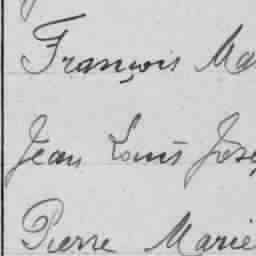 François Ma
Jean Louis Jose
Pierre Marie